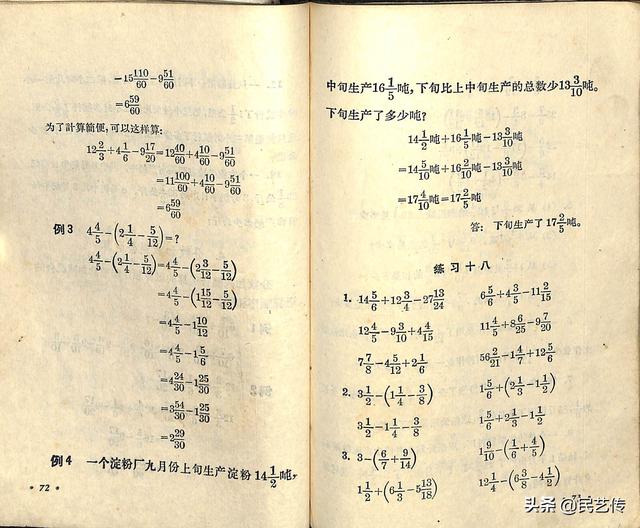 -15 110/60 - 9 51/60
=6 59/60
为了計算簡便，可以这样算：
12 2/3 + 4 1/6 - 9 17/20 = 12 40/60 + 4 10/60 - 9 51/60
=11 100/60 + 4 10/60 - 9 51/60
=6 59/60
例3 4 4/5 - (2 1/4 - 5/12) = ?
4 4/5 - (2 1/4 - 5/12) = 4 4/5 - (2 3/12 - 5/12)
=4 4/5 - (1 15/12 - 5/12)
=4 4/5 - 1 10/12
=4 4/5 - 1 5/6
=4 24/30 - 1 25/30
=3 54/30 - 1 25/30
=2 29/30
例4 一个淀粉厂九月份上旬生产淀粉 14 1/2 吨，
• 72 •
中旬生产16 1/5 吨，下旬比上中旬生产的总数少13 3/10 吨。
下旬生产了多少吨？
14 1/2 吨 + 16 1/5 吨 - 13 3/10 吨
=14 5/10 吨 + 16 2/10 吨 - 13 3/10 吨
=17 4/10 吨 = 17 2/5 吨
答：下旬生产了 17 2/5 吨。
练习十八
1. 14 5/6 + 12 3/4 - 27 13/24 6 5/6 + 4 3/5 - 11 2/15
12 4/5 - 9 3/10 + 4 4/15 11 4/5 + 8 6/25 - 9 7/20
7 7/8 - 4 5/12 + 2 1/6 56 2/21 - 1 4/7 + 12 5/6
2. 3 1/2 - (1 1/4 - 3/8) 1 5/6 + (2 1/3 - 1 1/2)
3 1/2 - 1 1/4 - 3/8 1 5/6 + 2 1/3 - 1 1/2
3. 3 - (6/7 + 9/14) 1 9/10 - (1/6 + 4/5)
1 1/2 + (6 1/3 - 5 13/18) 12 1/4 - (6 3/8 - 4 1/2)
头条 @民艺传